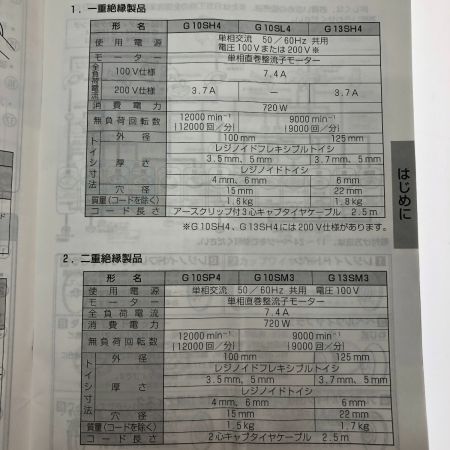 1. 一重絶縁製品
形 名 G10SH4 G10SL4 G13SH4
使用電源 単相交流 50／60Hz 共用
電圧100Vまたは200V※
モーター 単相直巻整流子モーター
全負荷電流 100V仕様 7.4A
200V仕様 3.7A － 3.7A
消費電力 720W
無負荷回転数 12000min⁻¹ 9000min⁻¹
〔12000回／分〕 〔9000回／分〕
トイシ寸法 外径 100mm 125mm
厚さ レジノイドフレキシブルトイシ
3.5mm、5mm 3.7mm、5mm
レジノイドトイシ
4mm、6mm 6mm
穴径 15mm 22mm
質量(コードを除く) 1.6kg 1.8kg
コード長さ アースクリップ付3心キャブタイヤケーブル 2.5m
※G10SH4、G13SH4には200V仕様があります。
はじめに
2. 二重絶縁製品
形 名 G10SP4 G10SM3 G13SM3
使用電源 単相交流 50／60Hz 共用 電圧100V
モーター 単相直巻整流子モーター
全負荷電流 7.4A
消費電力 720W
無負荷回転数 12000min⁻¹ 9000min⁻¹
〔12000回／分〕 〔9000回／分〕
トイシ寸法 外径 100mm 125mm
厚さ レジノイドフレキシブルトイシ
3.5mm、5mm 3.7mm、5mm
レジノイドトイシ
4mm、6mm 6mm
穴径 15mm 22mm
質量(コードを除く) 1.5kg 1.7kg
コード長さ 2心キャブタイヤケーブル 2.5m